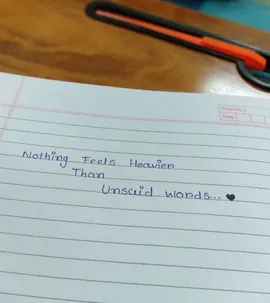 Nothing Feels Heavier
Than
Unsaid words...♥